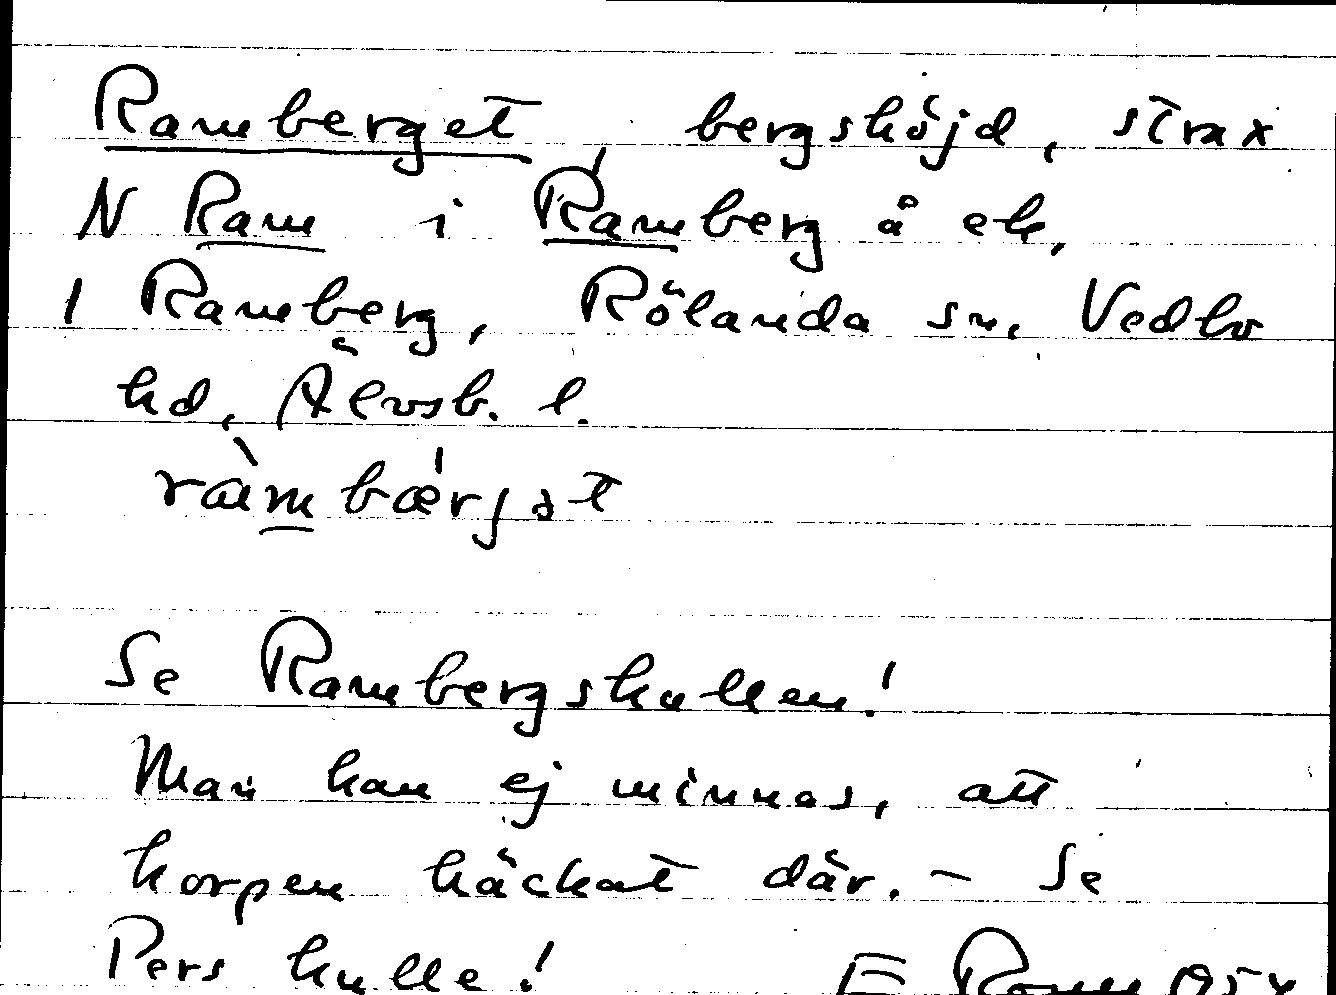 Ramberget, bergshöjd, strax
N Ram i Ramberg å ek,
1 Ramberg, Rölanda sn, Vedbo
hd, Älvsb. l.
ràmbærjət
Se Rambergskullen!
Man kan ej minnas, att
korpen häckat där. – Se
Pers kulle! E 195